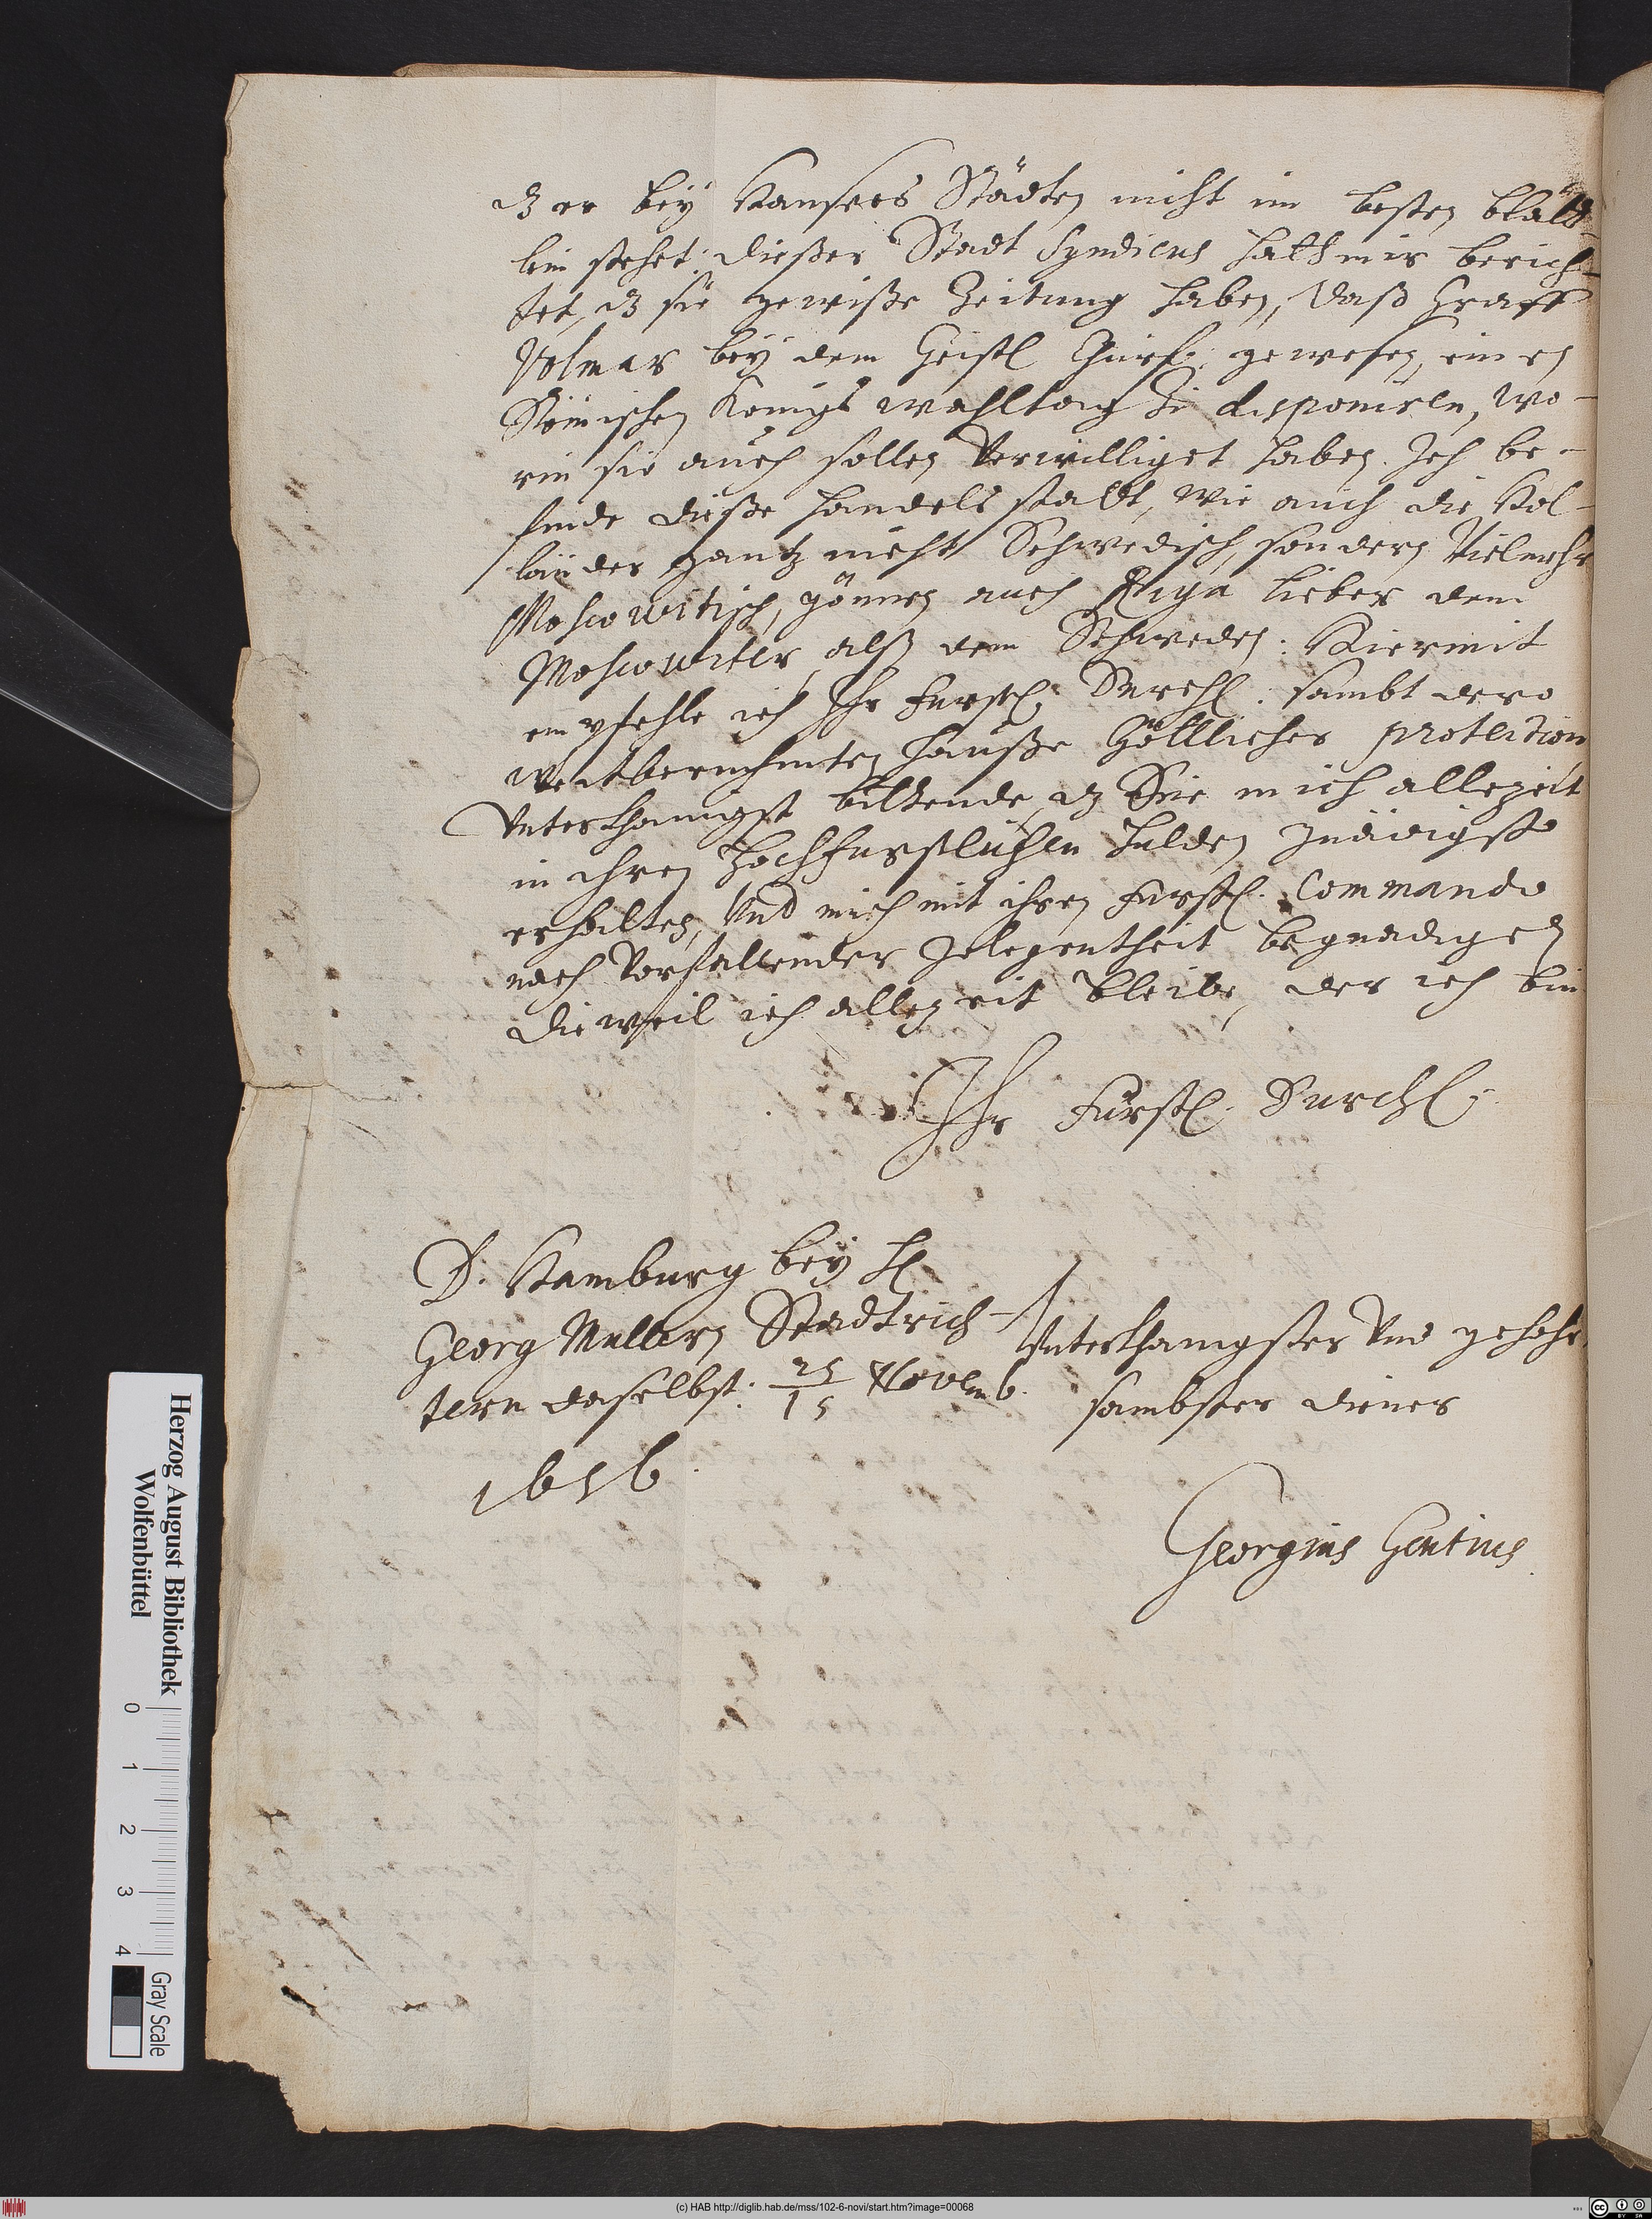 dz er bey Hansees Städten nicht im besten blätt-
lein stehet: dießer Stadt Syndicus hatt mir berich-
tet, dz sie gewiße Zeitung haben, daß Graff
Volmar bey dem Geistl. Churf: gewesen, einen
Römischen Königs wahltag zu disponiren, wo-
rin sie auch sollen Verwilliget haben. Ich be-
finde dieße handels stadt, wie auch die Hol-
länder gantz nicht Schwedisch, sondern Vielmehr
Moscowitisch, gönnen auch Riga lieber dem
Moscowiter, alß dem Schweden: Hiermit
empfehle ich Ihr Furstl: Durchl: sambt dero
weitberuhmten hauße Göttlicher protection
Unterthänigst bittende dz Sie mich allezeit
in ihren Hochfurstlichen hulden gnädigst
erhalten, Und mich mit ihren Furstl. Commando
nach Vorfallender gelegentheit begnadigen
dieweil ich allezeit bleibe, der ich bin
Ihr Fürstl. Durchl:
D. Hamburg bey H
Georg Mullern Stadtrich-
tern daselbst: 25/15 Novemb.
1656.
Unterthänigster Und gehohr-
sambster diener
Georgius Gentius
Herzog August Bibliothek
Wolfenbüttel
0 1 2 3 4
Gray Scale
(c) HAB http://diglib.hab.de/mss/102-6-novi/start.htm?image=00068